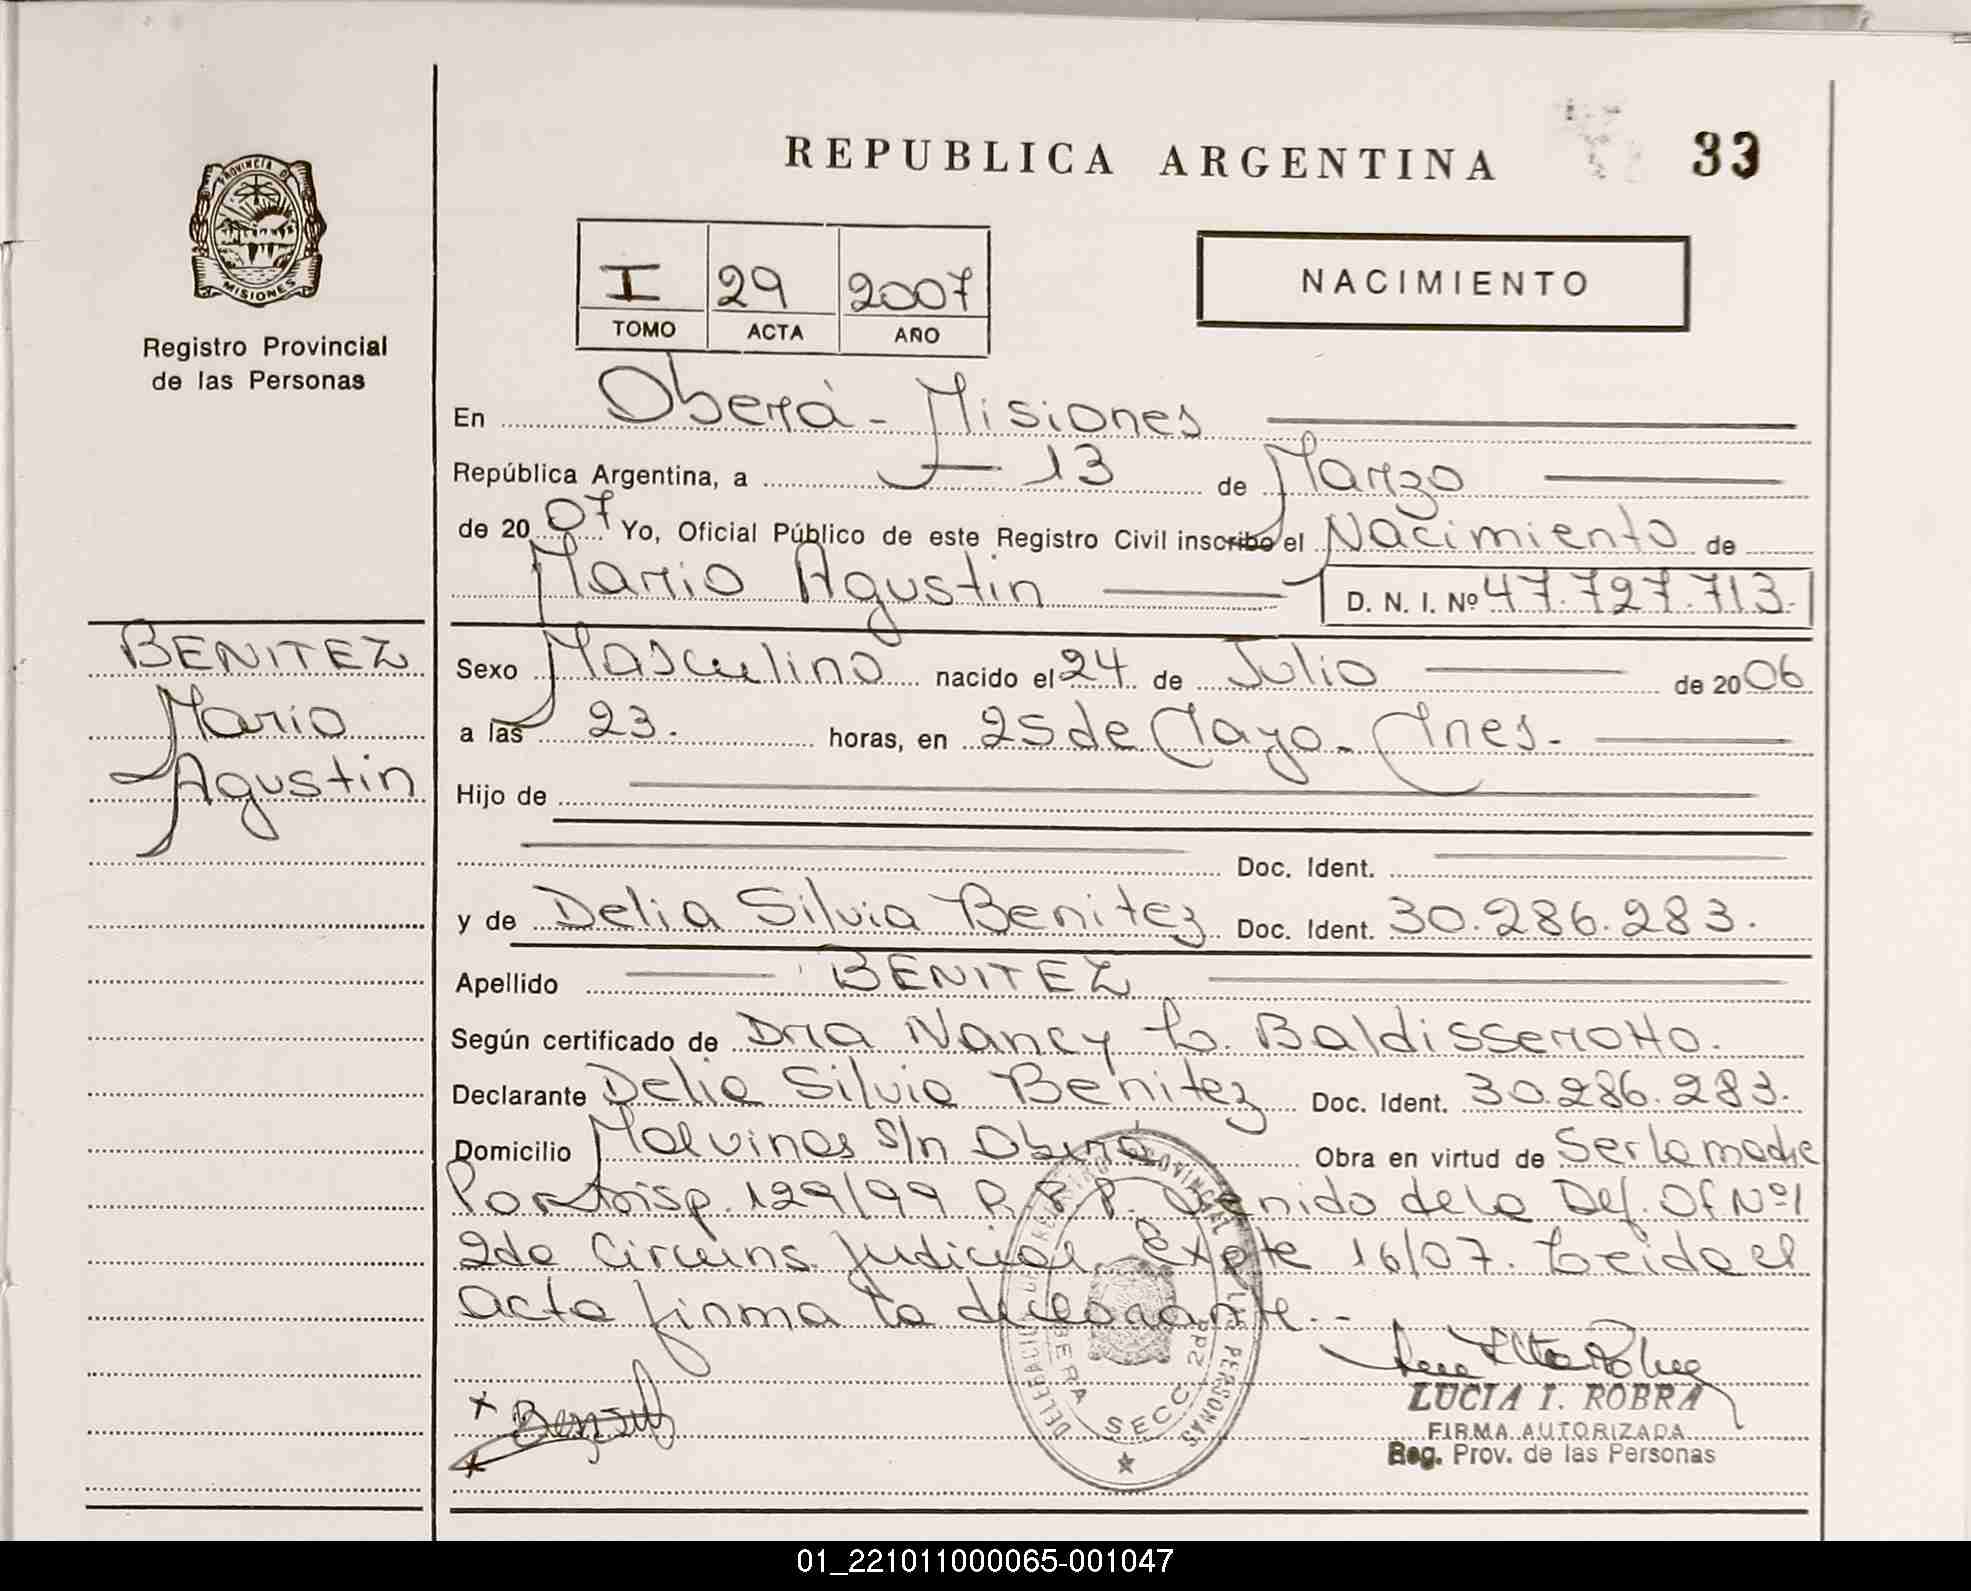 REPUBLICA ARGENTINA
33
PROVINCIA DE
MISIONES
Registro Provincial
de las Personas
I 29 2007
TOMO ACTA AÑO
NACIMIENTO
En Oberá - Misiones
República Argentina, a 13 de Marzo
de 2007 Yo, Oficial Público de este Registro Civil inscribo el Nacimiento de
Mario Agustin D. N. I. Nº 47.727.713.
BENITEZ
Mario
Agustin
Sexo Masculino nacido el 24 de Julio de 2006
a las 23. horas, en 25 de Mayo - Mnes.
Hijo de
Doc. Ident.
y de Delia Silvia Benitez Doc. Ident. 30.286.283.
Apellido BENITEZ
Según certificado de Dra Nancy L. Baldisserotto.
Declarante Delia Silvia Benitez Doc. Ident. 30.286.283.
Domicilio Malvinas s/n Oberá Obra en virtud de Ser la madre
Por Disp. 129/99 R.P.P. venido de la Def. Of Nº1
2da Circuns. Judicial Expte 16/07. Leida el
acta firma la declarante.-
DELEGACION REGISTRO PROVINCIAL DE LAS PERSONAS
OBERA SECC. 2da
LUCIA I. ROBRA
FIRMA AUTORIZADA
Reg. Prov. de las Personas
01_221011000065-001047